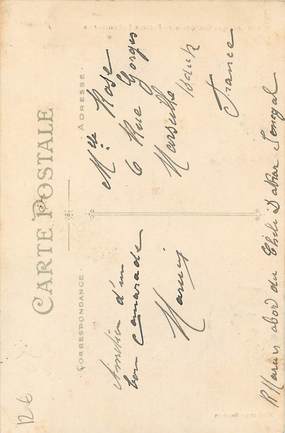 CARTE POSTALE
CORRESPONDANCE
ADRESSE
Amitiés d'un
bon Camarade
Marius
Mlle Rose
6 Rue Gorges
Marseille
France
Marius abord du Chili Dakar Senegal
126